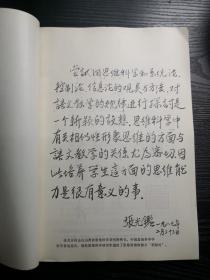 尝试用思维科学和系统论、
控制论、信息论的观点方法，对
语文教学的规律进行探讨是
一个新颖的设想。思维科学中
有关相似性形象思维的方面与
语文教学的关系尤为密切，因
此培养学生这方面的思维能
力是很有意义的事。
张光鉴
一九八七年
二月廿二日